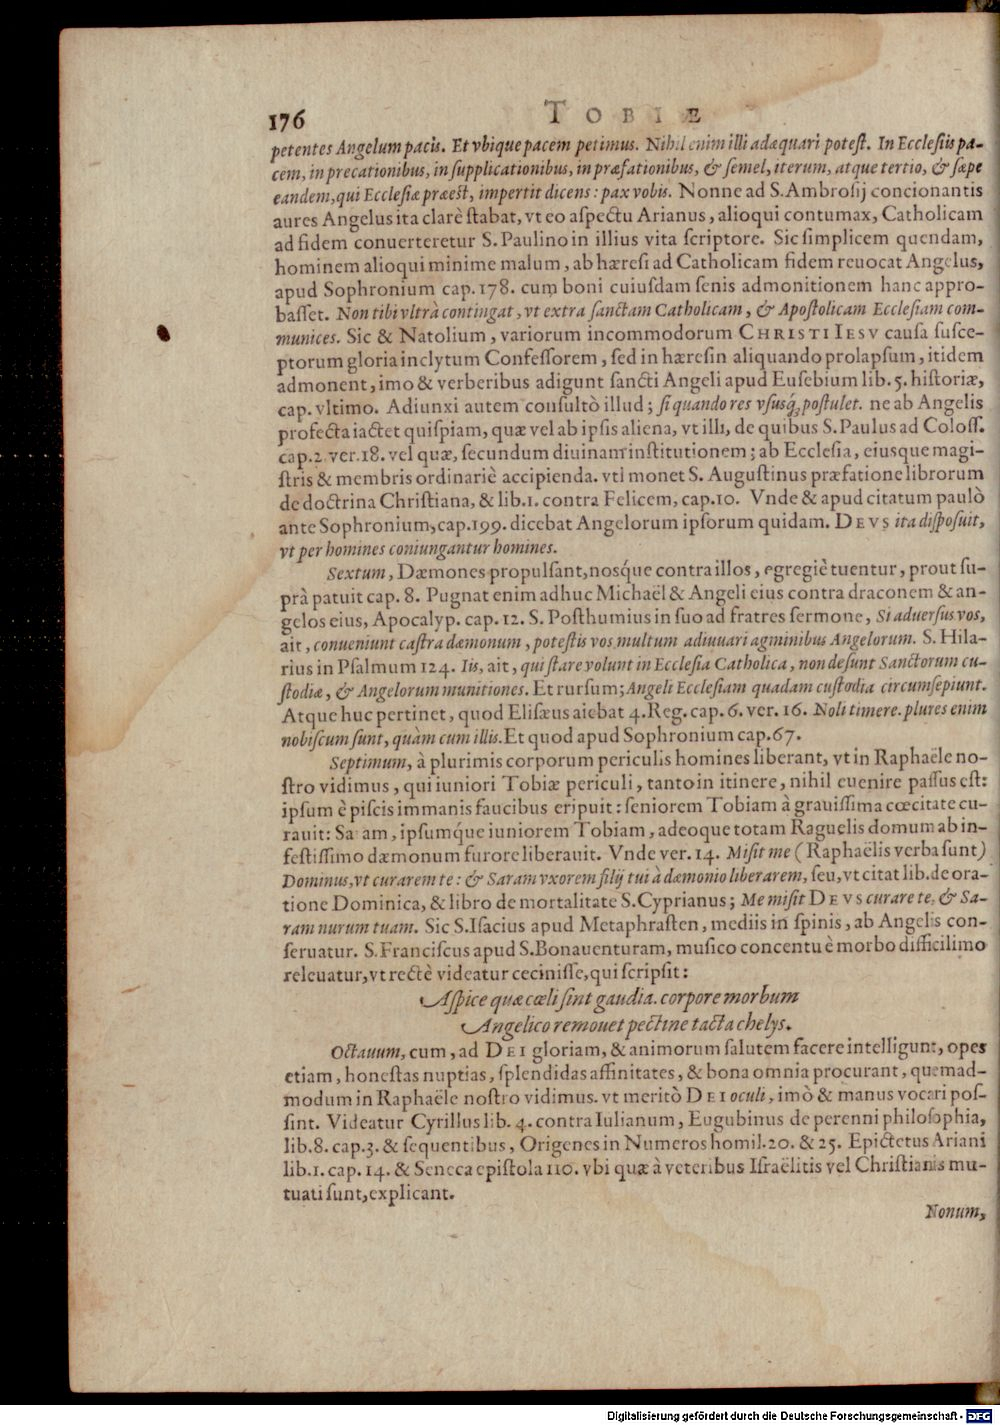 176
TOBIÆ
petentes Angelum pacis. Et vbique pacem petimus. Nihil enim illi adæquari potest. In Ecclesiis pa-
cem, in precationibus, in supplicationibus, in præfationibus, & semel, iterum, atque tertio, & sæpe
eandem, qui Ecclesiæ præest, impertit dicens: pax vobis. Nonne ad S. Ambrosij concionantis
aures Angelus ita clarè stabat, vt eo aspectu Arianus, alioqui contumax, Catholicam
ad fidem conuerteretur S. Paulino in illius vita scriptore. Sic simplicem quendam,
hominem alioqui minime malum, ab hæresi ad Catholicam fidem reuocat Angelus,
apud Sophronium cap. 178. cum boni cuiusdam senis admonitionem hanc appro-
basset. Non tibi vltrà contingat, vt extra sanctam Catholicam, & Apostolicam Ecclesiam com-
munices. Sic & Natolium, variorum incommodorum CHRISTI IESV causa susce-
ptorum gloria inclytum Confessorem, sed in hæresin aliquando prolapsum, itidem
admonent, imo & verberibus adigunt sancti Angeli apud Eusebium lib. 5. historiæ,
cap. vltimo. Adiunxi autem consultò illud; si quando res vsusq́ postulet. ne ab Angelis
profecta iactet quispiam, quæ vel ab ipsis aliena, vt illi, de quibus S. Paulus ad Coloss.
cap. 2. ver. 18. vel quæ, secundum diuinam institutionem; ab Ecclesia, eiusque magi-
stris & membris ordinariè accipienda. vti monet S. Augustinus præfatione librorum
de doctrina Christiana, & lib. 1. contra Felicem, cap. 10. Vnde & apud citatum paulò
ante Sophronium, cap. 199. dicebat Angelorum ipsorum quidam. DEVS ita disposuit,
vt per homines coniungantur homines.
Sextum, Dæmones propulsant, nosq́ue contra illos, egregiè tuentur, prout su-
prà patuit cap. 8. Pugnat enim adhuc Michaël & Angeli eius contra draconem & an-
gelos eius, Apocalyp. cap. 12. S. Posthumius in suo ad fratres sermone, Si aduersus vos,
ait, conueniunt castra dæmonum, potestis vos multum adiuuari agminibus Angelorum. S. Hila-
rius in Psalmum 124. Iis, ait, qui stare volunt in Ecclesia Catholica, non desunt Sanctorum cu-
stodiæ, & Angelorum munitiones. Et rursum; Angeli Ecclesiam quadam custodia circumsepiunt.
Atque huc pertinet, quod Elisæus aiebat 4. Reg. cap. 6. ver. 16. Noli timere. plures enim
nobiscum sunt, quàm cum illis. Et quod apud Sophronium cap. 67.
Septimum, à plurimis corporum periculis homines liberant, vt in Raphaële no-
stro vidimus, qui iuniori Tobiæ periculi, tanto in itinere, nihil euenire passus est:
ipsum è piscis immanis faucibus eripuit: seniorem Tobiam à grauissima cœcitate cu-
rauit: Saram, ipsumq́ue iuniorem Tobiam, adeoque totam Raguelis domum ab in-
festissimo dæmonum furore liberauit. Vnde ver. 14. Misit me (Raphaëlis verba sunt)
Dominus, vt curarem te: & Saram vxorem filij tui à dæmonio liberarem, seu, vt citat lib. de ora-
tione Dominica, & libro de mortalitate S. Cyprianus; Me misit DEVS curare te, & Sa-
ram nurum tuam. Sic S. Isacius apud Metaphrasten, mediis in spinis, ab Angelis con-
seruatur. S. Franciscus apud S. Bonauenturam, musico concentu è morbo difficilimo
releuatur, vt rectè videatur cecinisse, qui scripsit:
Aspice quæ cœli sint gaudia. corpore morbum
Angelico remouet pectine tacta chelys.
Octauum, cum, ad DEI gloriam, & animorum salutem facere intelligunt, opes
etiam, honestas nuptias, splendidas affinitates, & bona omnia procurant, quemad-
modum in Raphaële nostro vidimus. vt meritò DEI oculi, imò & manus vocari pos-
sint. Videatur Cyrillus lib. 4. contra Iulianum, Eugubinus de perenni philosophia,
lib. 8. cap. 3. & sequentibus, Origenes in Numeros homil. 20. & 25. Epictetus Ariani
lib. 1. cap. 14. & Seneca epistola 110. vbi quæ à veteribus Israëlitis vel Christianis mu-
tuati sunt, explicant.
Nonum,
Digitalisierung gefördert durch die Deutsche Forschungsgemeinschaft - DFG